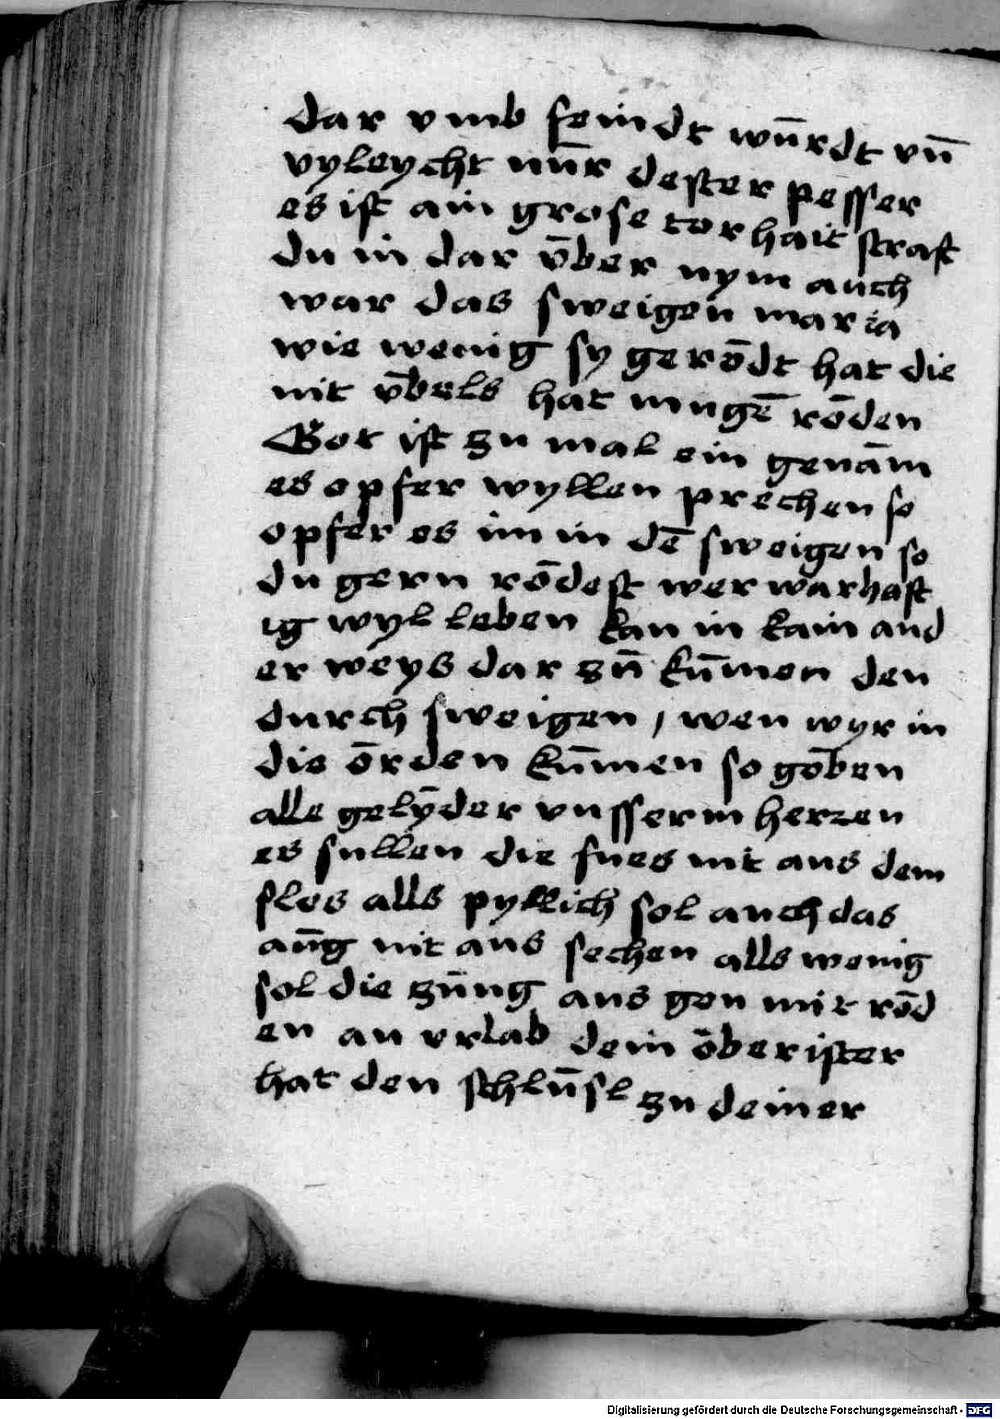 dar vmb feindt wūrdt vn̄
vyleycht nūr dester pesser
es ist ain grose torhait straft
du in dar v̄ber nym auch
war das sweigen maria
wie wenig sy gerōdt hat die
nit v̄bels hat mugē rōden
Got ist zu mal ein genām
es opfer wyllen prechen so
opfer es im in dē sweigen so
du gern rōdest wer warhaft
ig wyl leben kan in kain and
er weys dar zū kūmen den
durch sweigen / wen wyr in
die ōrden kūmen so gōben
alle gelȳder vnsserm herzen
es sullen die fues nit aus dem
slos alls pyllich sol auch das
aūg nit aus sechen alls wenig
sol die zūng aus gen mit rōd
en an vrlab dein ōberister
hat den schlūsl zu deiner
Digitalisierung gefördert durch die Deutsche Forschungsgemeinschaft - DFG